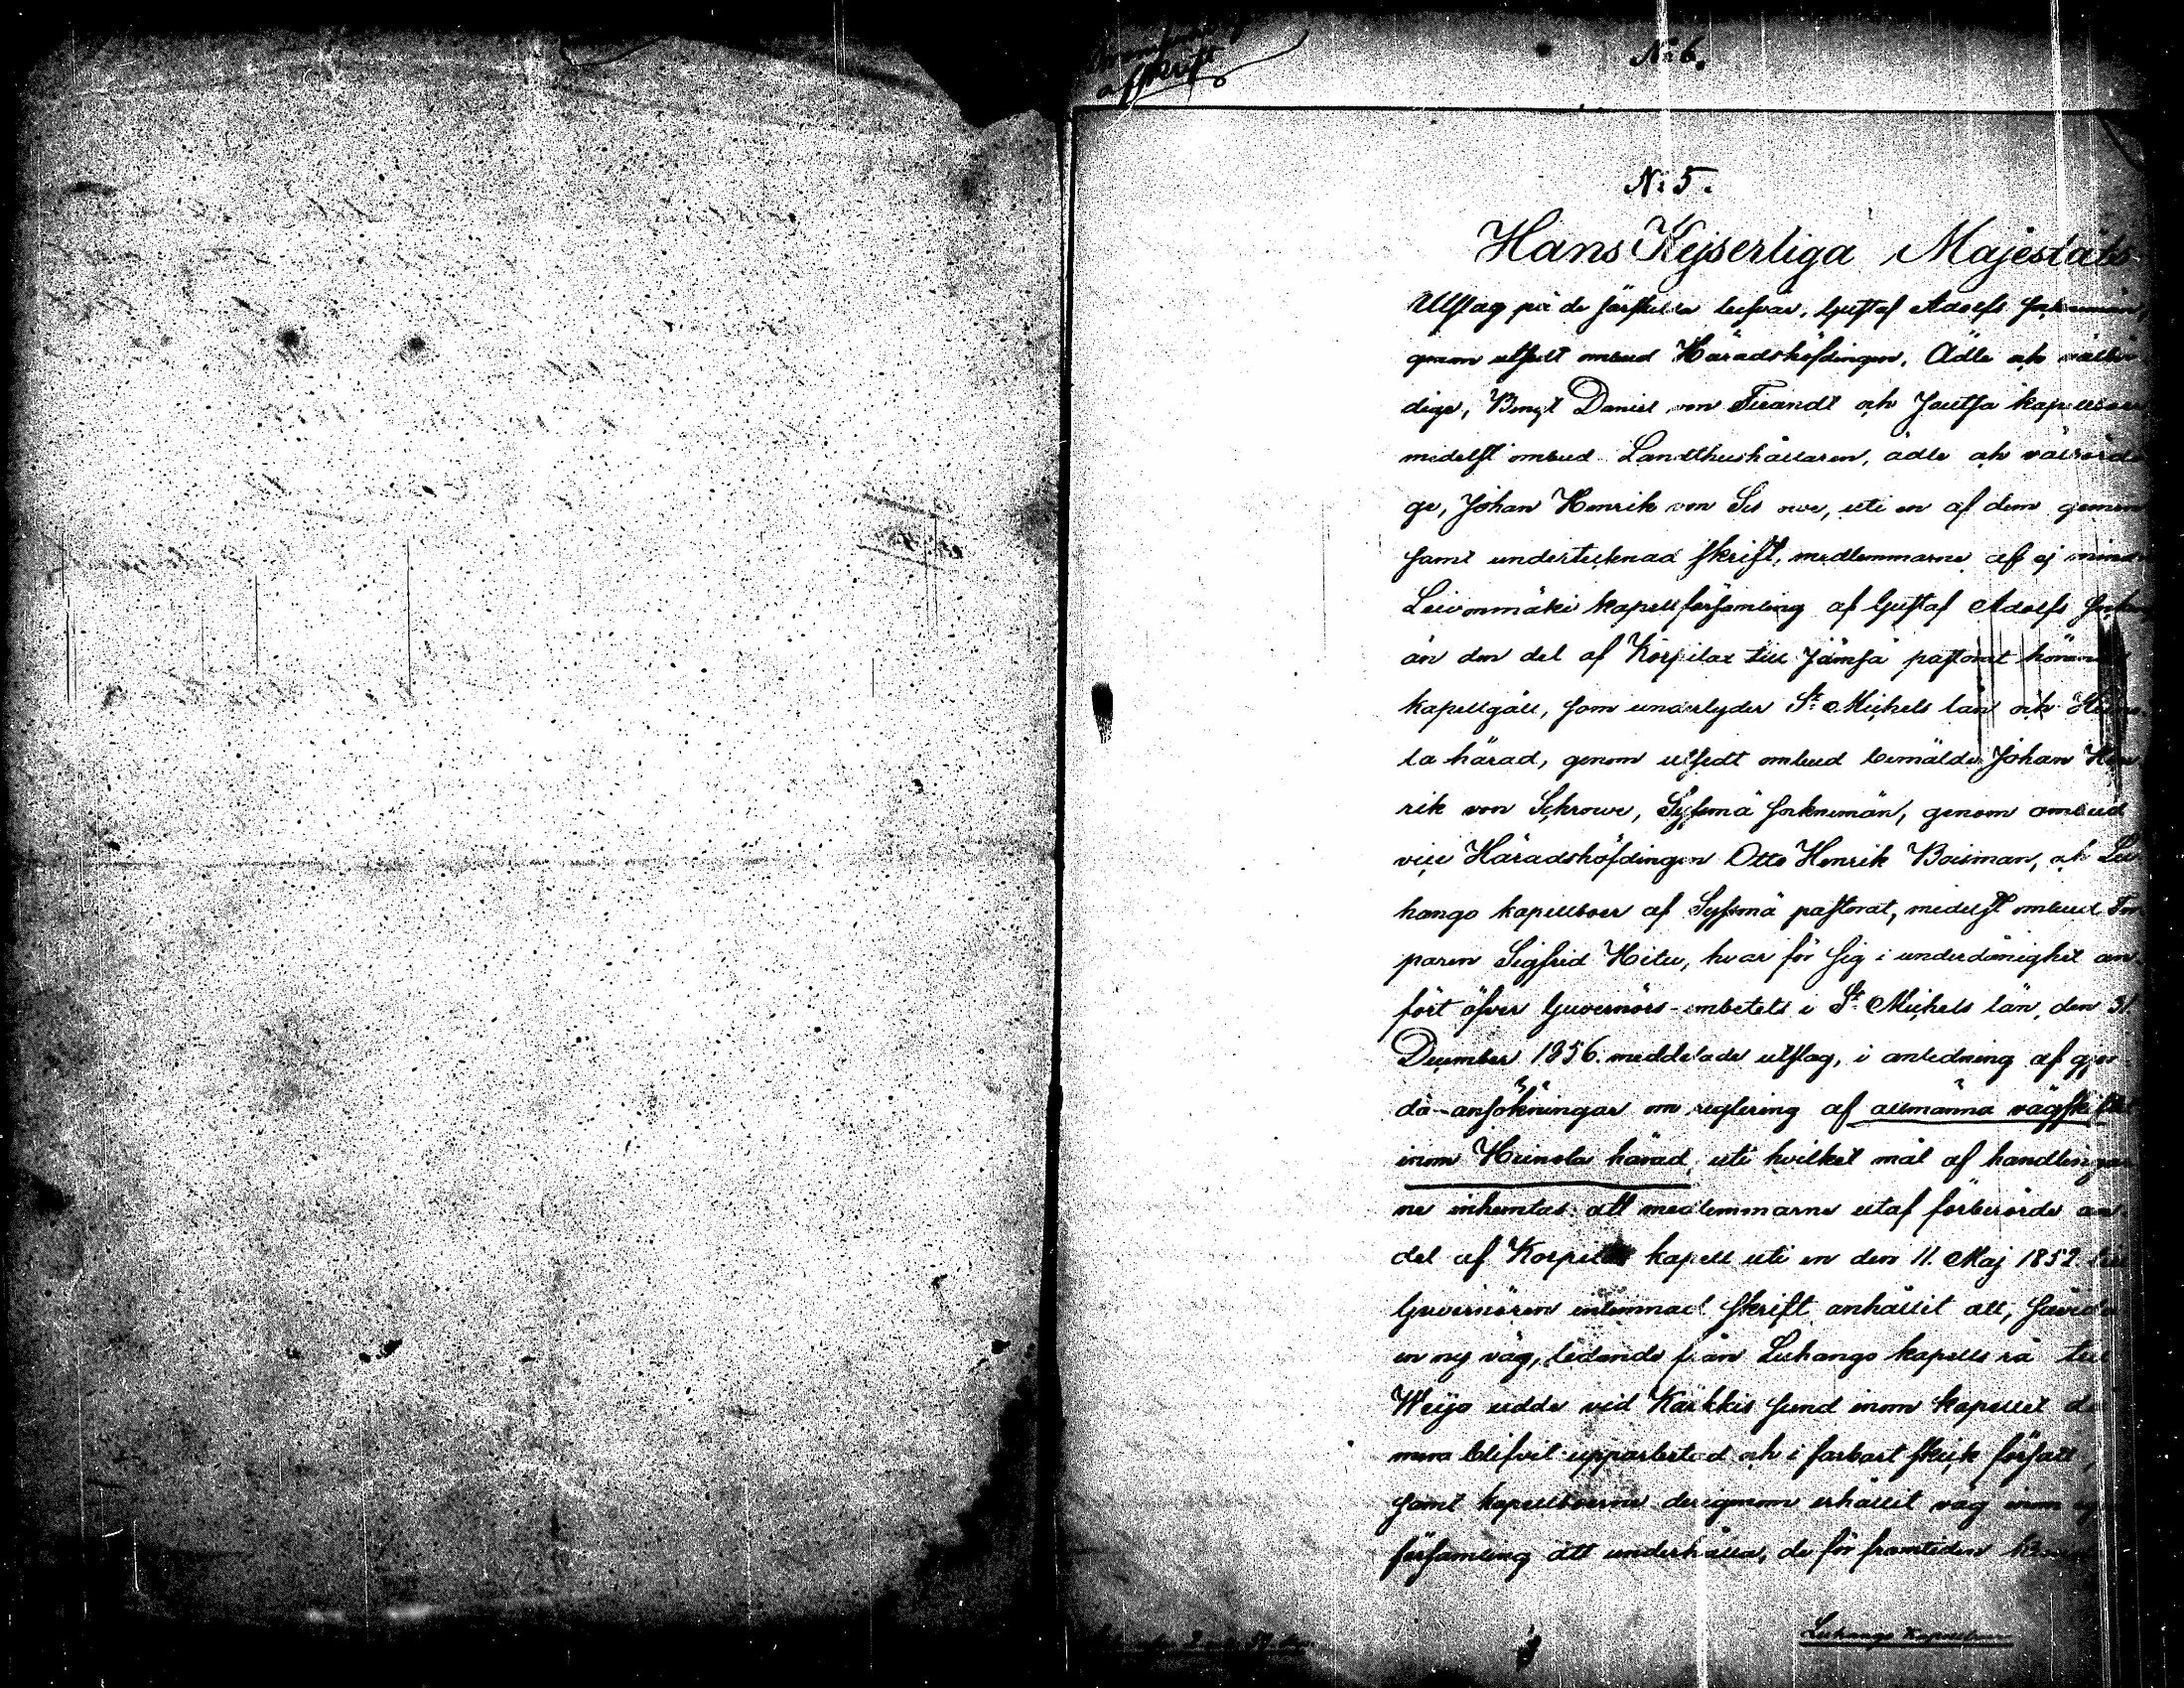 afskrift
N:o 6.
N:o 5.
Hans Kejserliga Majestäts
Utslag på de särskilda besvär, Gustaf Adolfs sockenmän,
genom utsedt ombud Häradshöfdingen, Ädle och välbör-
dige, Bengt Daniel von Tirandt och Joutsa kapellboer
medelst ombud Landthushållaren, ädle och välbördi-
ge, Johan Henrik von, uti en af dem gemen
samt undertecknad skrift, medlemmarne af ej mindre
Leivonmäki kapellförsamling af Gustaf Adolfs socken,
än den del af Korpilax till Jämsä pastorat hörande
kapellgäll, som underlyder St Michels län och Heino-
la härad, genom utsedt ombud bemälde Johan Hen-
rik von Schrowe, Sysmä socknemän, genom ombud
vice Häradshöfdingen Otto Henrik Boisman, och Lu-
hango kapellboer af Sysmä pastorat, medelst ombud Tor-
paren Sigfrid Hitu, hvar för sig i underdånighet an-
fört öfver Guvernörs-embetets i St Michels län, den 31.
December 1856. meddelade utslag, i anledning af gjor-
da ansökningar om reglering af allmänna vägskiftet
inom Heinola härad, uti hvilket mål af handlingar-
ne inhemtas: att medlemmarne utaf förberörde an-
del af Korpilax kapell uti en den 11. Maj 1852. till
Guvernören inlemnad skrift anhållit att, sävida
en ny väg, ledande från Luhango kapells rå till
Weijo udde vid Kärkkis sund inom kapellet
mera blifvit upparbetad och i farbart skick försatt,
samt kapellboerne derigenom erhållit väg inom
församling att underhålla, de för framtiden
Luhango Kapellboer